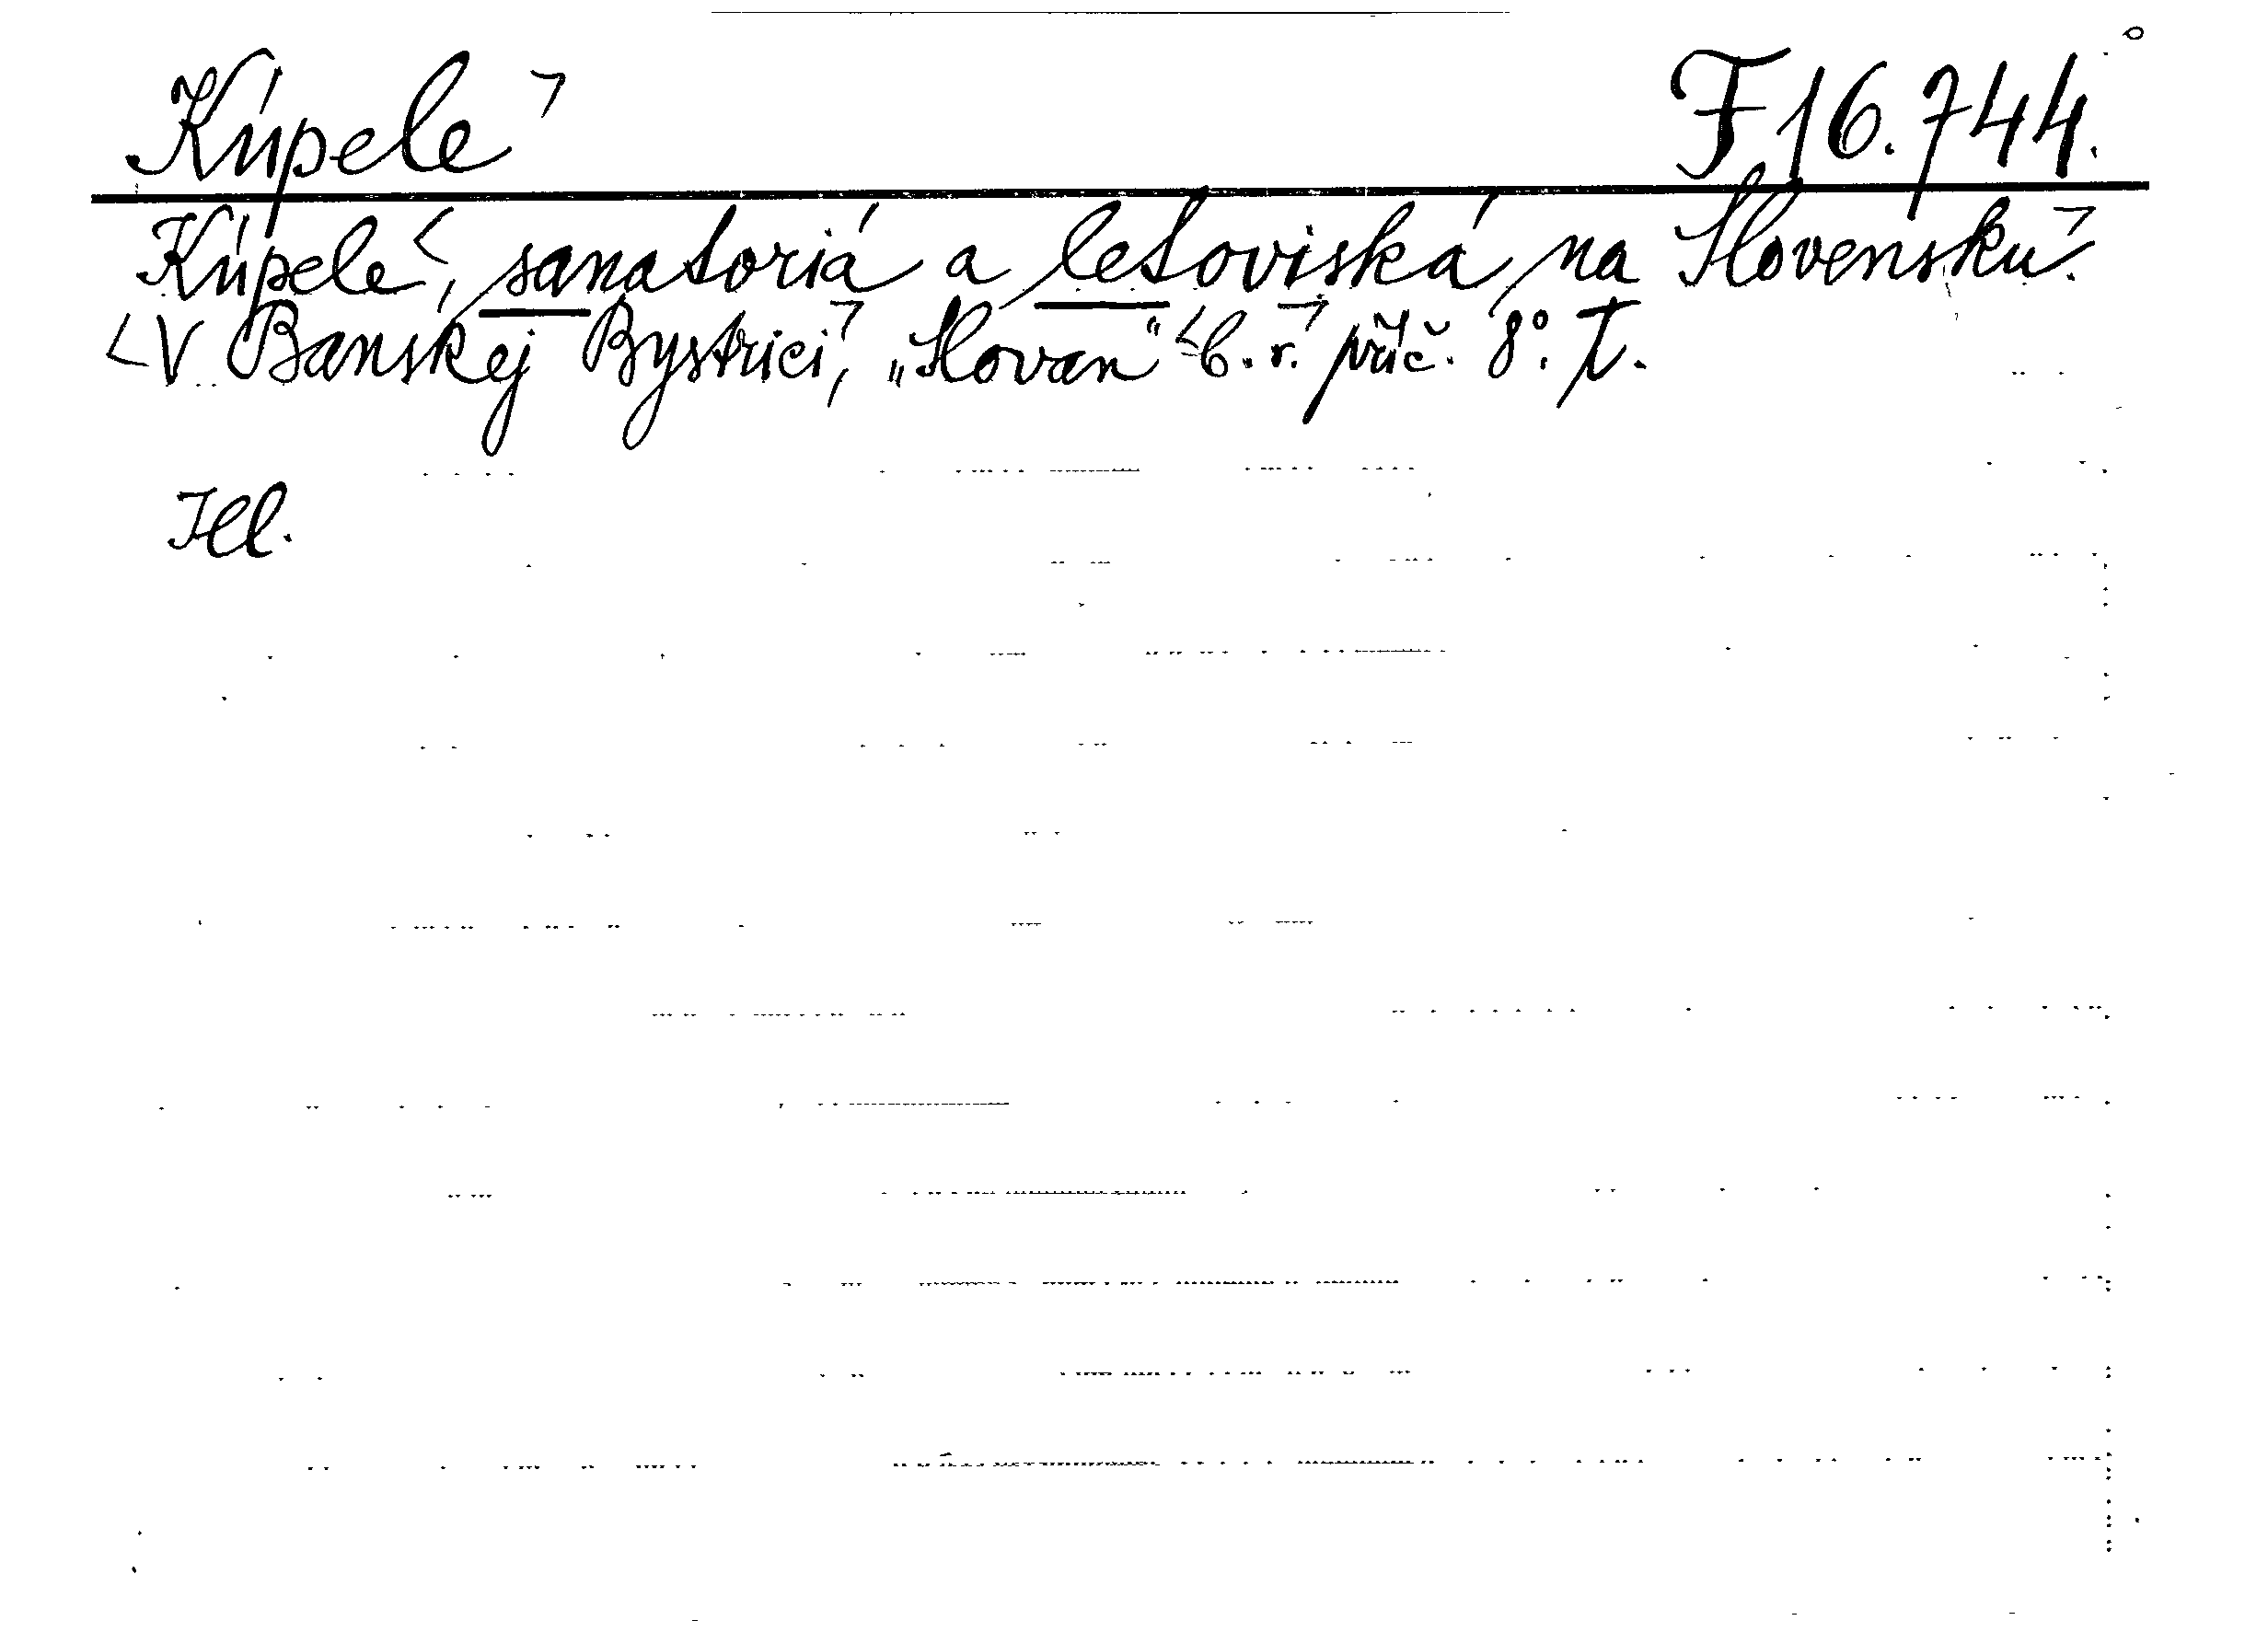 Kúpele ⌝ F 16.744.
Kúpele <, sanatoriá a letoviská na Slovensku ⌝.
<V Banskej Bystrici ⌝, „Slovan“ <b. r. ⌝ příč. 8°. T.
Ill.